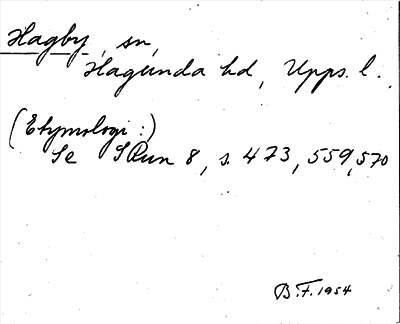 Hagby, sn,
Hagunda hd, Upps. l.
(Etymologi:)
Se SRun 8, s. 473, 559, 570
B.F. 1954